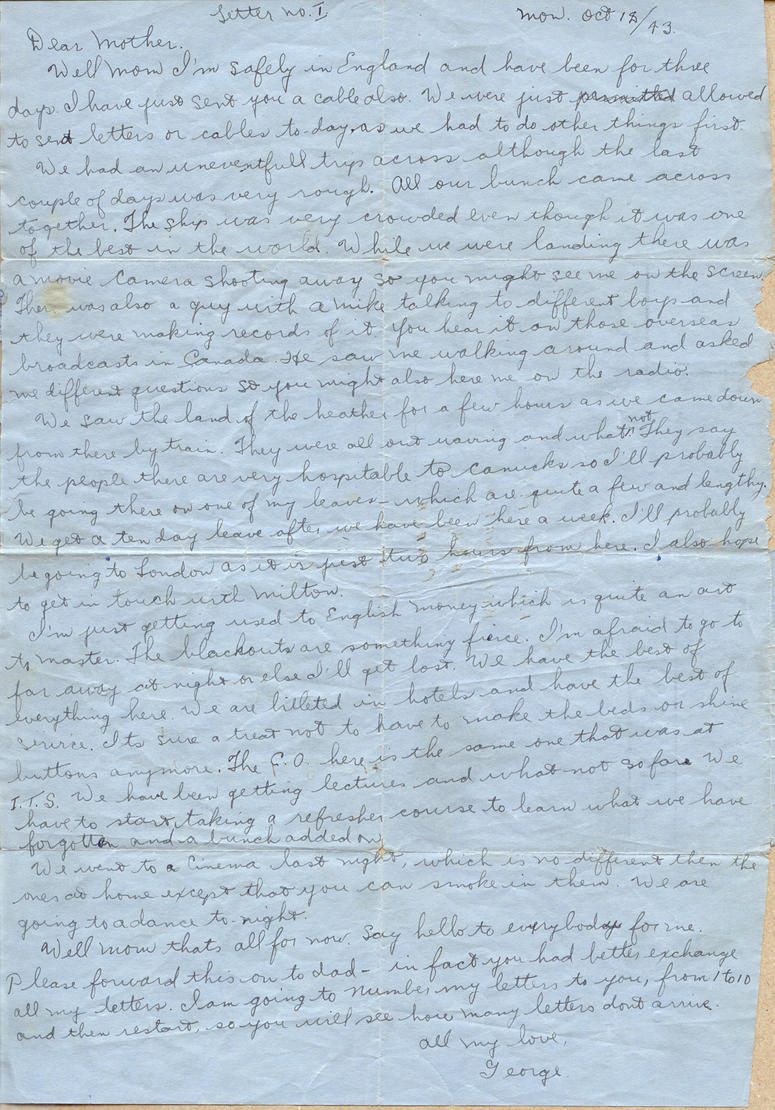 Letter no. I
Mon. Oct 18/43.
Dear Mother.
Well Mom I'm safely in England and have been for three
days. I have just sent you a cable also. We were just allowed
to sent letters or cables to-day as we had to do other things first.
We had an uneventfull trip across although the last
couple of days was very rough. All our bunch came across
together. The ship was very crowded even though it was one
of the best in the world. While we were landing there was
a movie camera shooting away so you might see me on the screen
There was also a guy with a mike talking to different boys and
they were making records of it. You hear it on those overseas
broadcasts in Canada. He saw me walking around and asked
me different questions so you might also here me on the radio.
We saw the land of the heather for a few hours as we came down
from there by train. They were all out waving and what not. They say
the people there are very hospitable to canucks so I'll probably
be going there on one of my leaves - which are quite a few and lengthy.
We get a ten day leave after we have been here a week. I'll probably
be going to London as it is just two hours from here. I also hope
to get in touch with Milton.
I'm just getting used to English money which is quite an art
to master. The blackouts are something fierce. I'm afraid to go to
far away at night or else I'll get lost. We have the best of
everything here. We are billeted in hotels and have the best of
service. Its sure a treat not to have to make the beds or shine
buttons anymore. The C.O. here is the same one that was at
I.T.S. We have been getting lectures and what not so far. We
have to start taking a refresher course to learn what we have
forgotten and a bunch added on
We went to a Cinema last night, which is no different then the
ones at home except that you can smoke in them. We are
going to a dance to-night.
Well Mom thats all for now. Say hello to everybody for me.
Please forward this on to dad - in fact you had better exchange
all my letters. I am going to number my letters to you, from 1 to 10
and then restart, so you will see how many letters dont arrive.
all my love,
George.